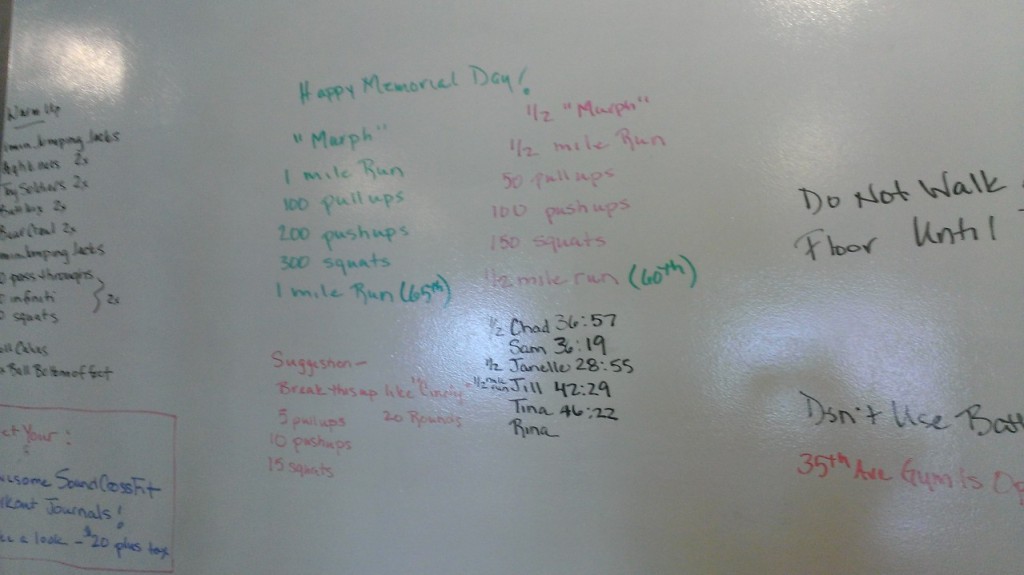 Warm Up
min Jumping Jacks
2x
Toy Soldiers 2x
2x
Bear Crawl 2x
min Jumping Jacks
pass throughs
infiniti } 2x
squats
Ball Bottom of feet
et Your:
Awesome Sound CrossFit
Workout Journals!
a look - $20 plus tax
Happy Memorial Day!
"Murph"
1 mile Run
100 pull ups
200 pushups
300 squats
1 mile Run (65th)
1/2 "Murph"
1/2 mile Run
50 pull ups
100 pushups
150 squats
1/2 mile run (60th)
Suggestion—
Break this up like "Cindy"
5 pullups 20 Rounds
10 pushups
15 squats
1/2 Chad 36:57
Sam 36:19
1/2 Janelle 28:55
1/2 mile run Jill 42:29
Tina 46:22
Rina
Do Not Walk
Floor Until
Don't Use Bat
35th Ave Gym Is Op